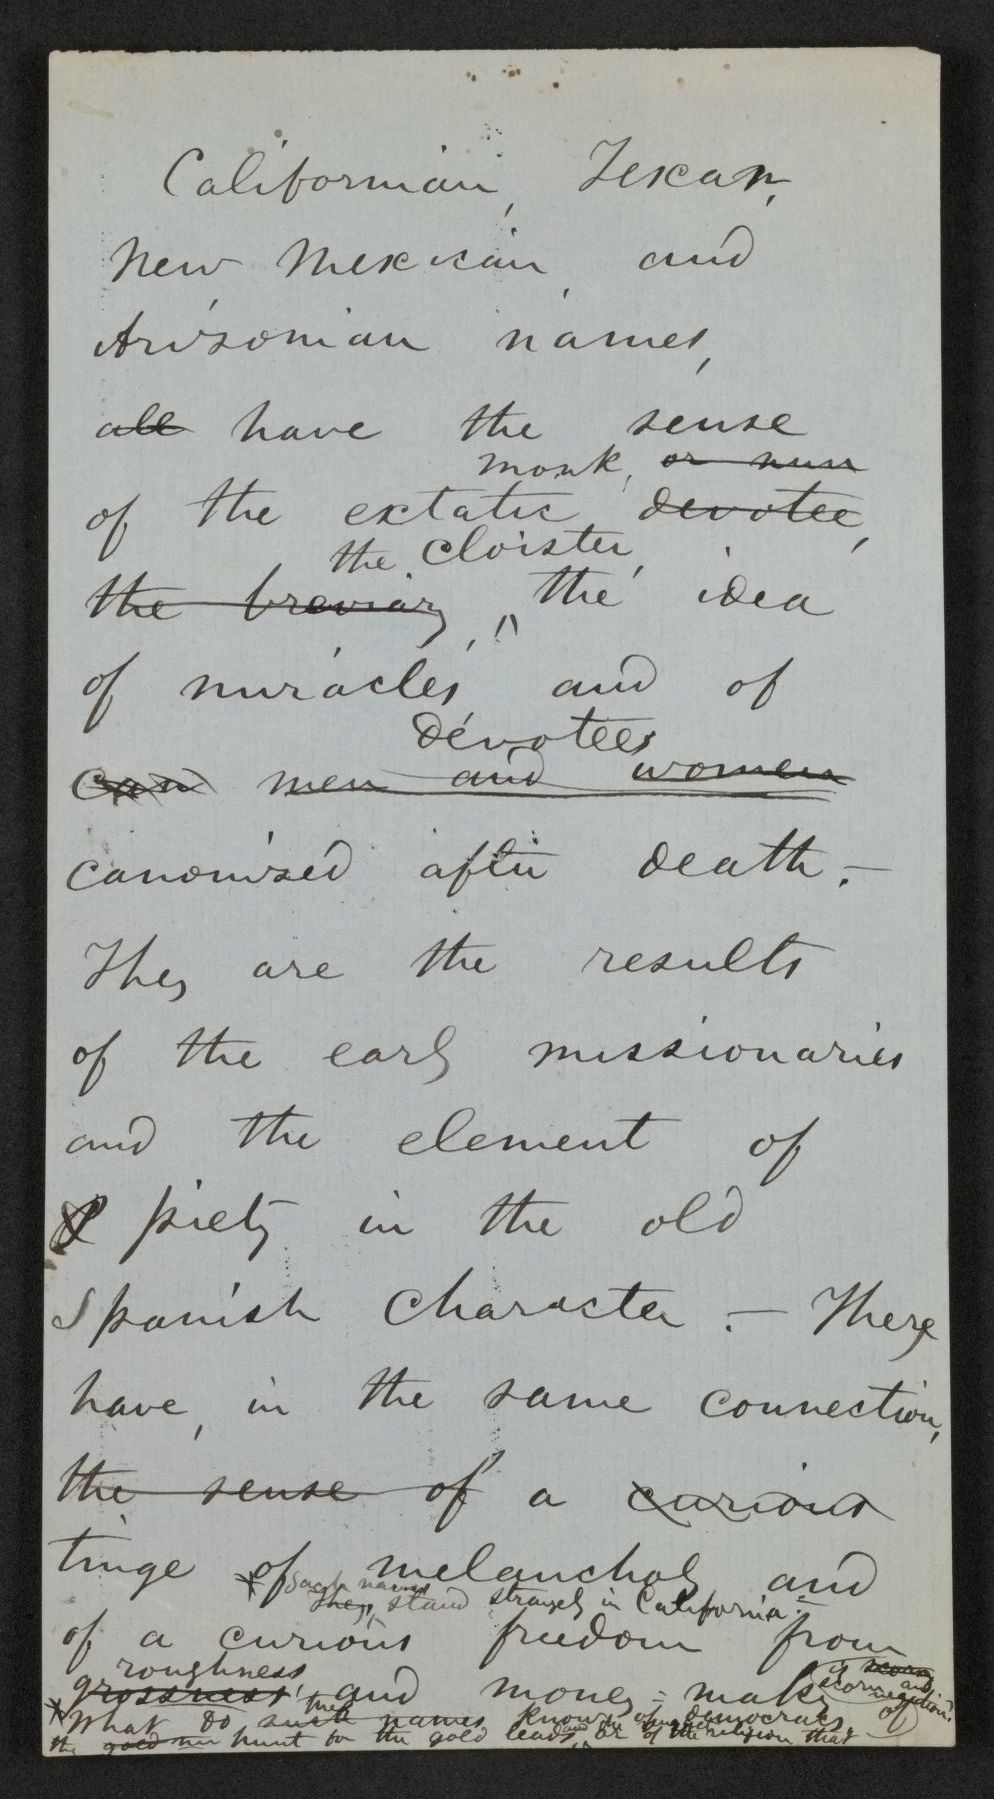 Californian, Texan,
New Mexican, and
Arizonian names,
all have the sense
monk, or nun
of the extatic devotee,
the cloister,
the breviary, the idea
of miracles, and of
devotees
Can men and women
canonized after death.—
They are the results
of the early missionaries
and the element of
piety in the old
Spanish character.— There
have, in the same connection,
the sense of a curious
tinge of melancholy and
Such names
They, stand strangely in California.
of a curious freedom from
roughness
grossness, and money-making
scorn and negation
of
What do such names know of democracy,
the
the gold run hunt for the gold leads, and the or of the religion that